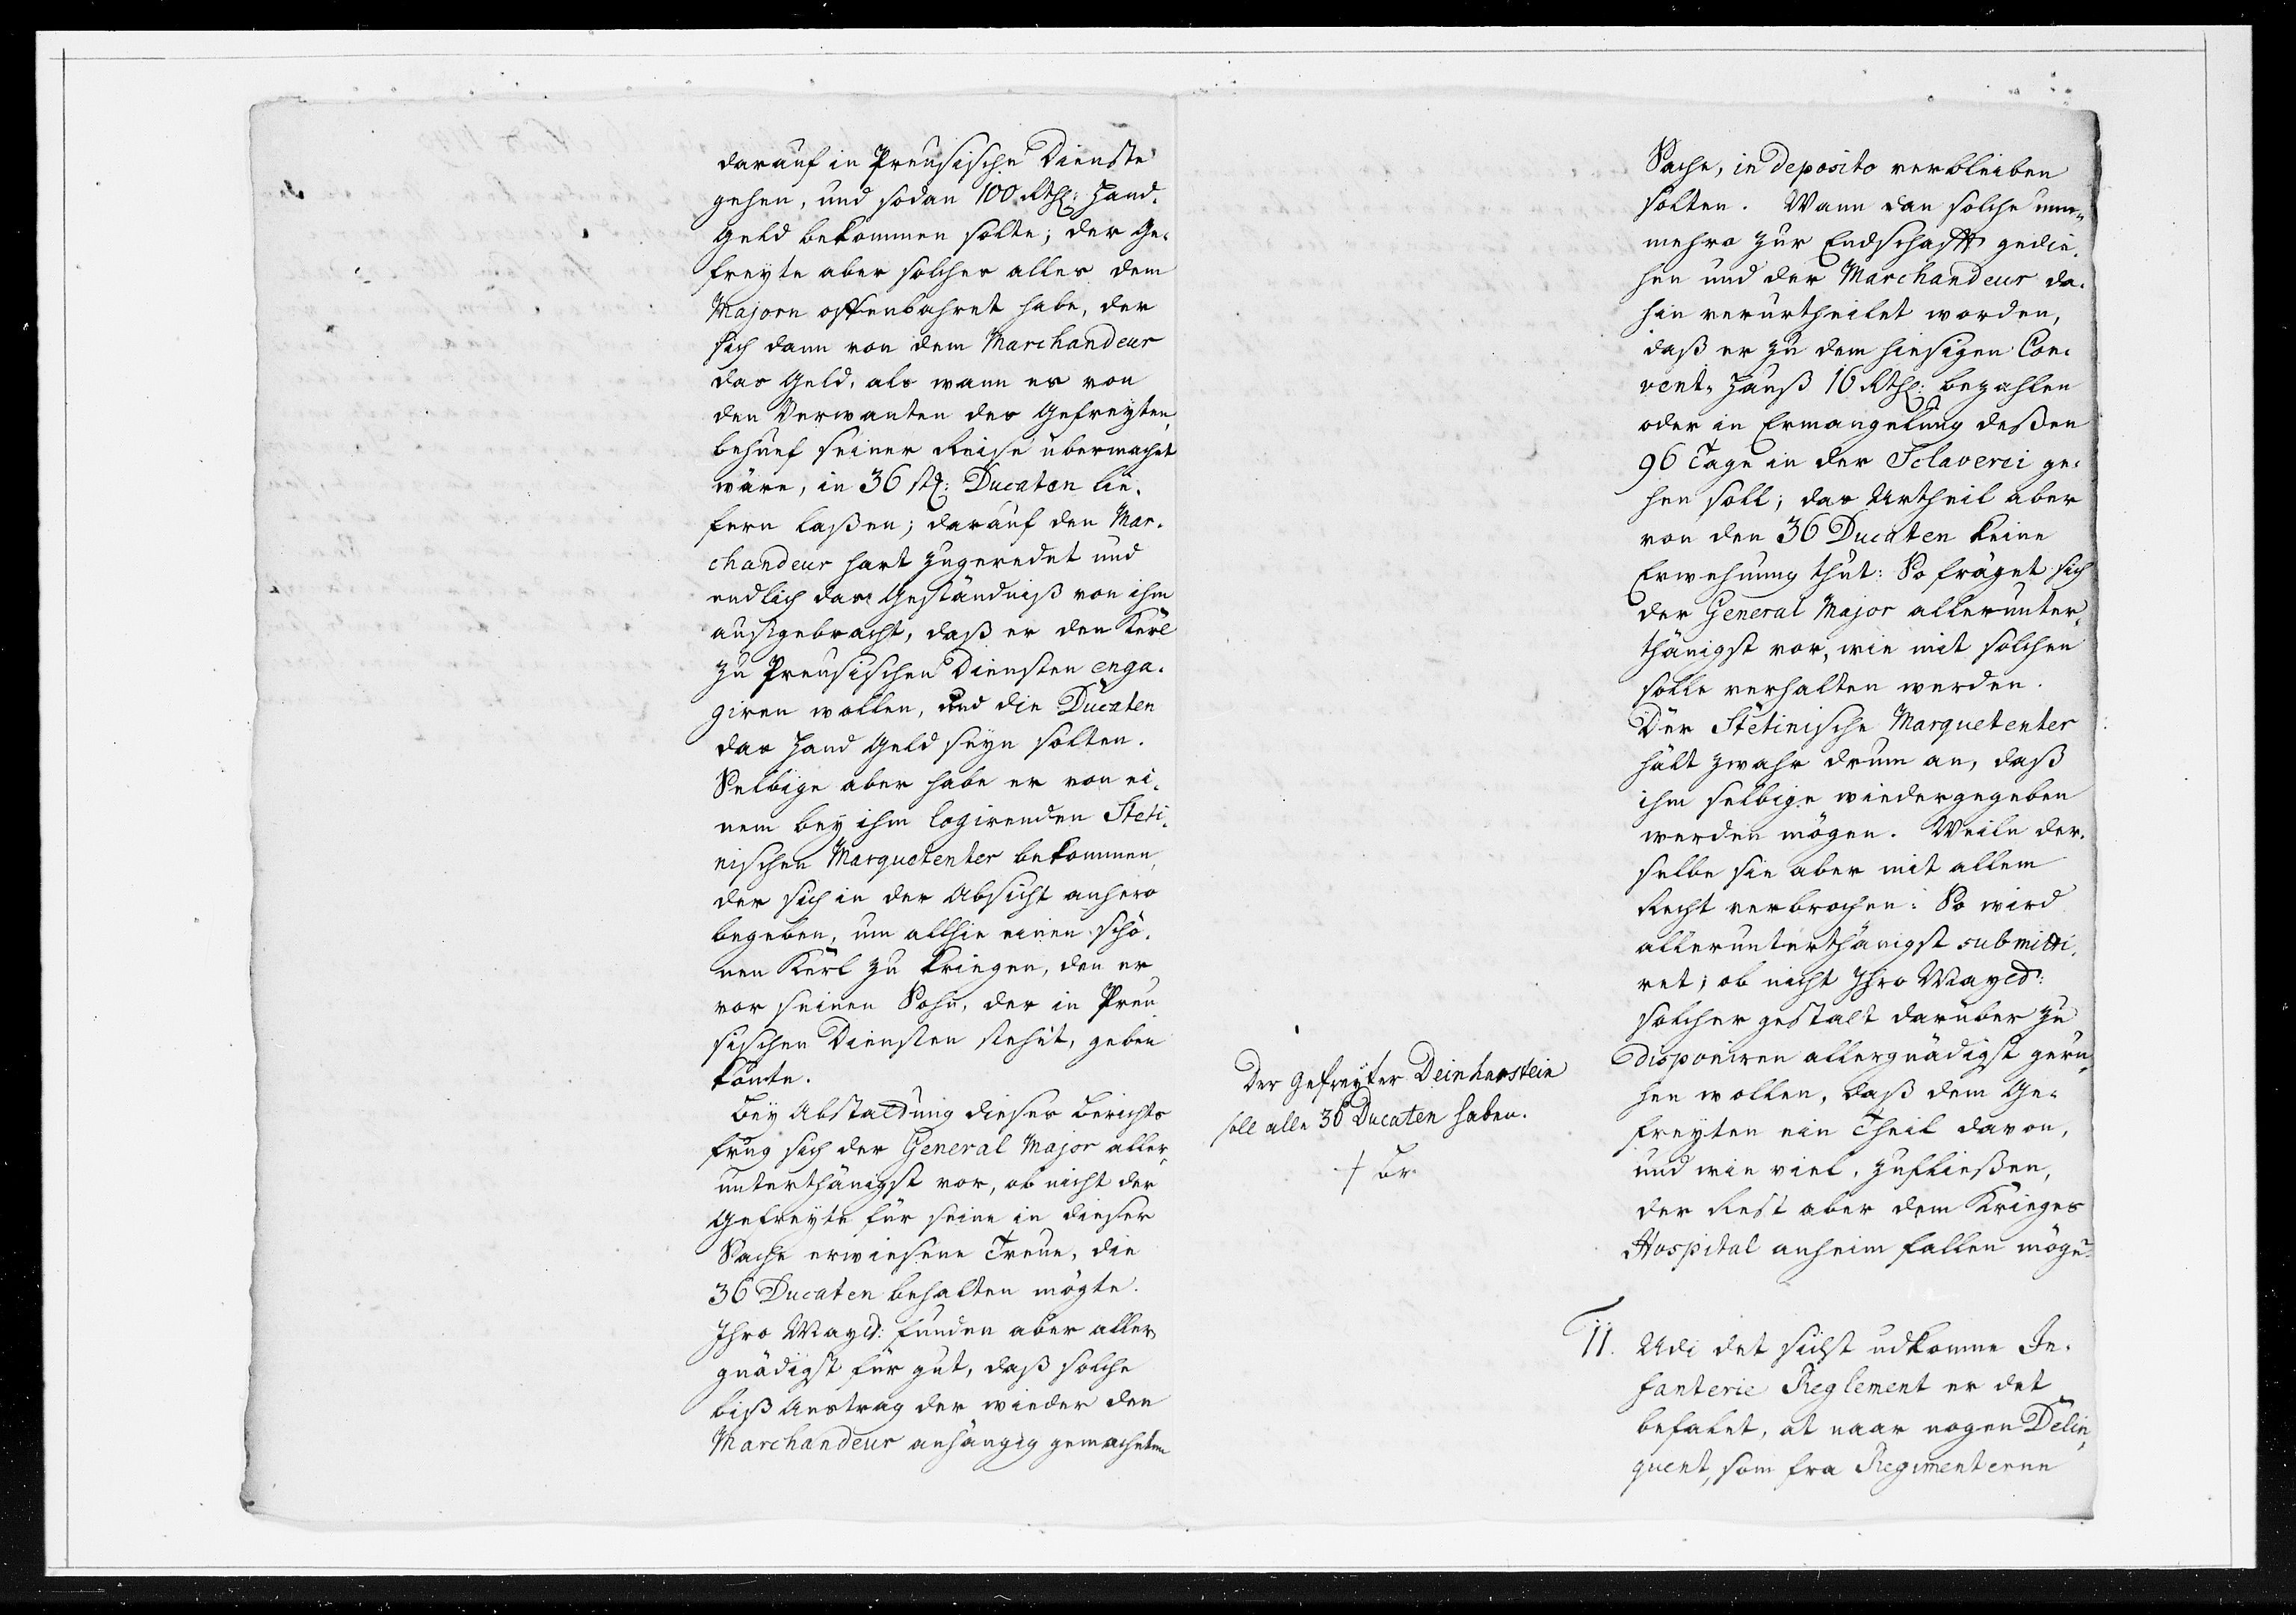 darauf in Preusische Dienste
gehen, und sodan 100 Rthl: Hand-
Geld bekommen solte; der Ge-
freyte aber solches alles dem
Majorn offenbahret habe, der
sich dann von dem Marchandeur
das Geld, als wann es von
den Verwanten des Gefreyten,
behuef seiner Reise übermacht
wäre, in 36 st: Ducaten lie-
fern laßen; darauf den Mar-
chandeur hart zugeredet und
endlich das Geständniß von ihm
ausgebracht, daß er den Kerl
zu Preusischen Diensten enga-
giren wollen, und die Ducaten
das Hand Geld seyn solten.
Selbige aber habe er von ei-
nem bey ihm logirenden Steti-
nischen Marquetenter bekommen,
der sich in der Absicht anhero
begeben, um allhie einen schö-
nen Kerl zu kriegen, den er
vor seinen Sohn, der in Preu-
sischen Diensten stehet, geben
könte.
Bey Abstattung dieses Berichts
frug sich der General Major aller-
unterthänigst vor, ob nicht der
Gefreyte für seine in dieser
Sache erwiesene Treue, die
36 Ducaten behalten mögte.
Ihro Mayt: funden aber aller-
gnädigst für gut, daß solche
biß Austrag der wieder den
Marchandeur anhängig gemachten
Der Gefreyter Deinhastein
soll alle 36 Ducaten haben.
Sache, in deposito verbleiben
solten. Wann dan solche nun-
mehro zur Endschafft gedie-
hen und der Marchandeur da-
hin verurtheilet worden,
daß er zu dem hiesigen Con-
vent-Hauß 16 Rthl: bezahlen
oder in Ermangelung deßen
96 Tage in der Sclaverei ge-
hen soll; das Urtheil aber
von den 36 Ducaten keine
Erwehnung thut: So fräget sich
der General Major allerunter-
thänigst vor, wie mit solchen
solle verhalten werden.
Der Stetinische Marquetenter
hält zwahr drum an, daß
ihm selbige wiedergegeben
werden mögen. Weiln der-
selbe sie aber mit allem
Recht verbrochen: So wird
allerunterthänigst submitti-
ret; ob nicht Ihro Mayt:
solcher gestalt darüber zu
disponiren allergnädigst geru-
hen wollen, daß dem Ge-
freyten ein Theil davon,
und wie viel, zufließen,
der Rest aber dem Krieges
Hospital anheim fallen möge.
11. Udi det sidst udkomne In-
fanterie Reglement er det
befalet, at naar nogen Delin-
quent, som fra Regimenterne